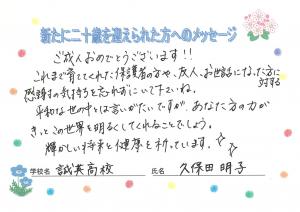 新たに二十歳を迎えられた方へのメッセージ
ご成人おめでとうございます!!
これまで育ててくれた保護者の方や、友人、お世話になった方に対する
感謝の気持ちを忘れずにいて下さいね。
平和な世の中とは言いがたいですが、あなた方の力が
きっとこの世界を明るくしてくれることでしょう。
輝かしい将来と健康を祈っています。
学校名 誠英高校 氏名 久保田 明子